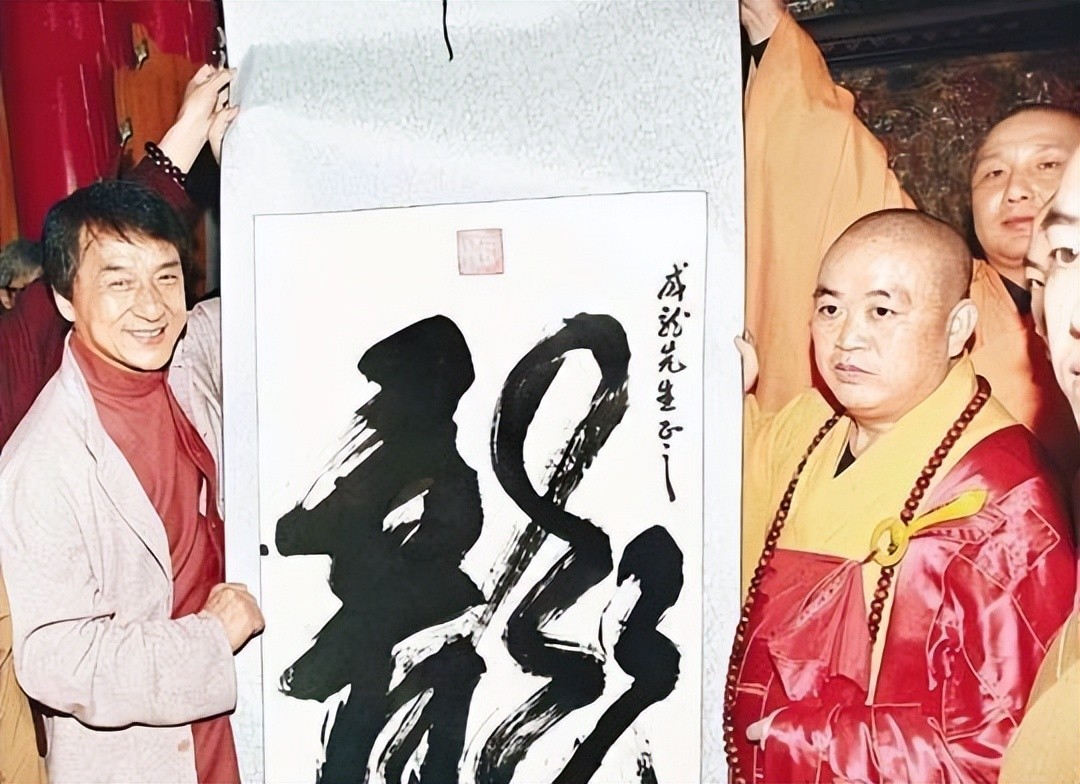 成龙先生正之
龍